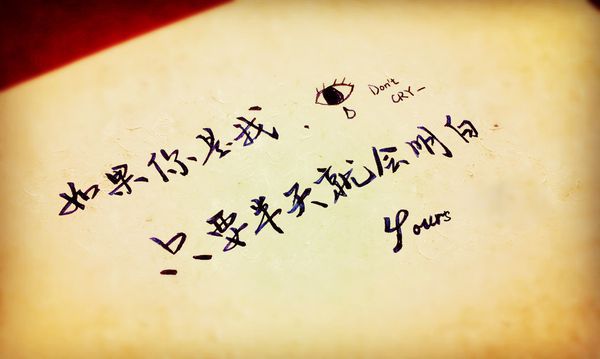 如果你是我.
Don't
CRY_
只要半天就会明白
Yours